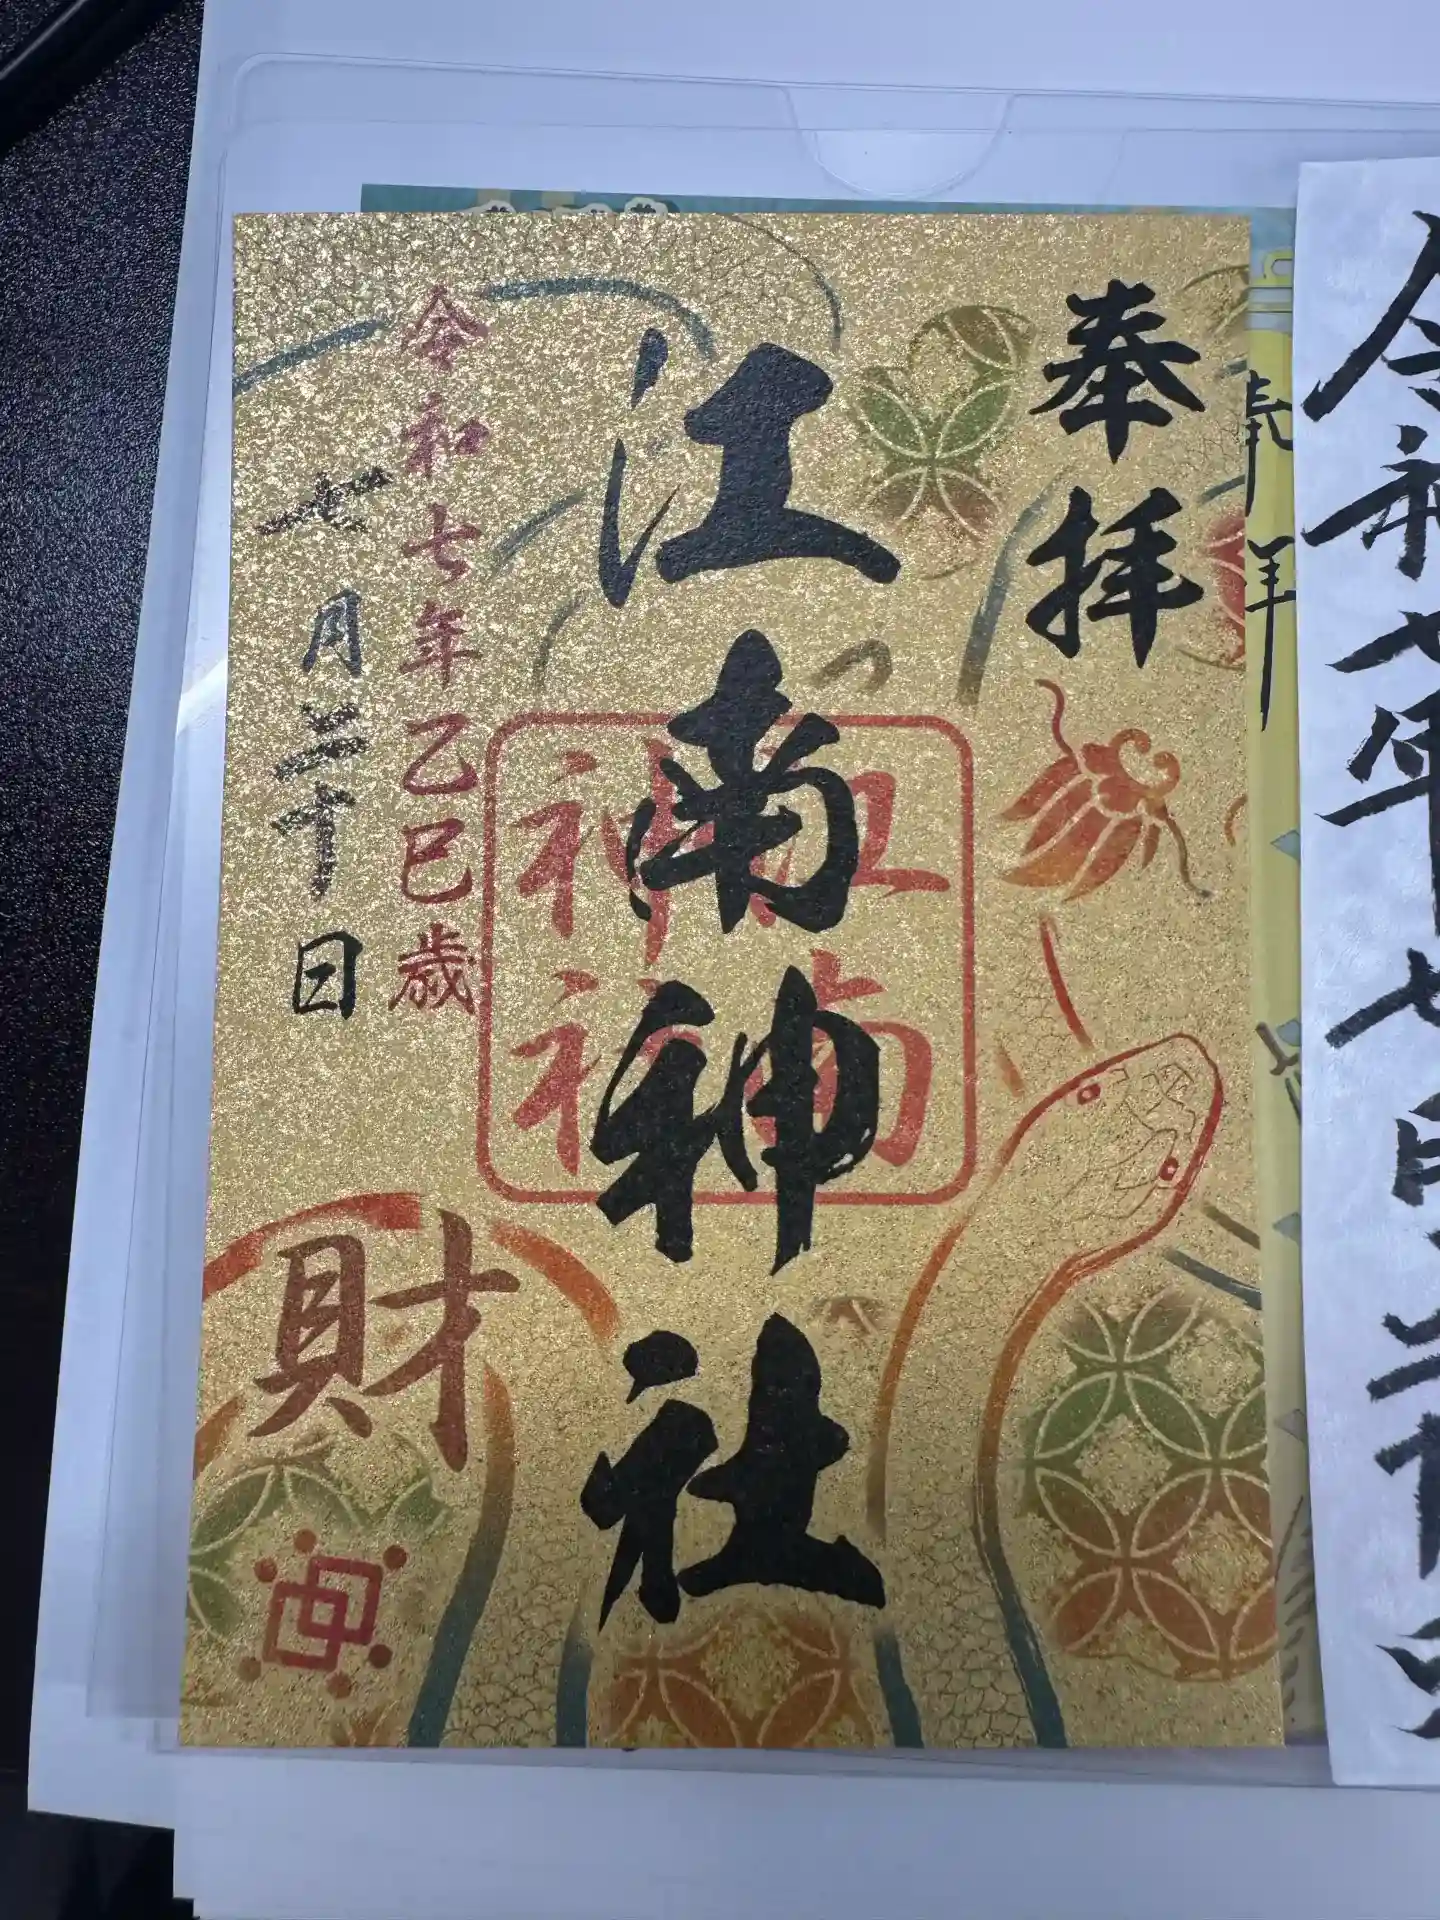 奉拝
江南神社
江南
神社
令和七年乙巳歳
七月二十日
財
奉拝
令和七年七月二十